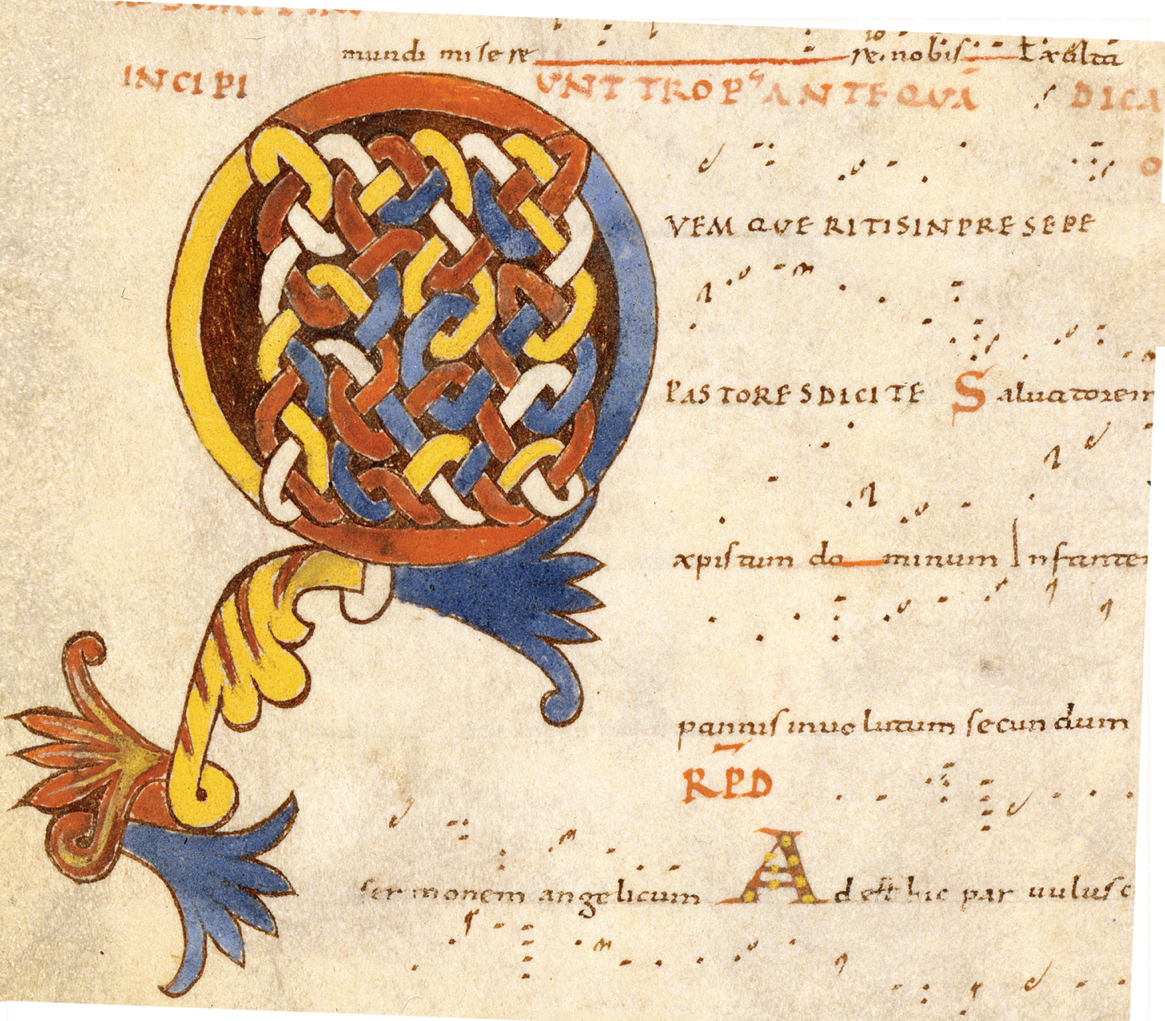 mundi mise re re. nobis Exalta
INCIPI UNT TROPS ANTEQUA DICA
Q VEM QUERITIS IN PRESEPE
PASTORES DICITE Salvatorem
xpistum do minum Infantem
pannis inuolutum secundum
RPD
sermonem angelicum Adest hic paruulus c